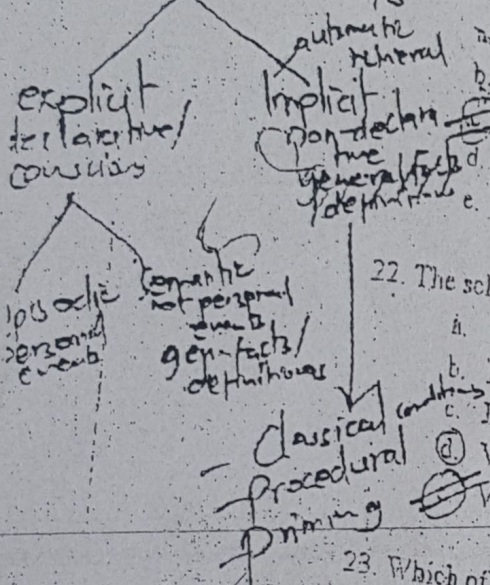 automatic
retrieval
explicit
declarative/
conscious
Implicit
non-declara
tive
general facts
/definitions
episodic
personal
events
Semantic
not personal
events
gen-facts/
definitions
Classical conditions
- Procedural
- Priming
b.
d
e.
22. The
a.
b.
c.
d.
23. Which of